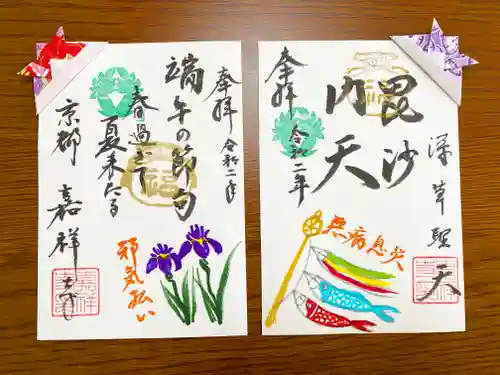 奉拝 令和二年
端午の節句
春過ぎて
夏来たる
京都 嘉祥寺
邪気払い
深草聖天
毘沙
門天
奉拝
令和二年
無病息災